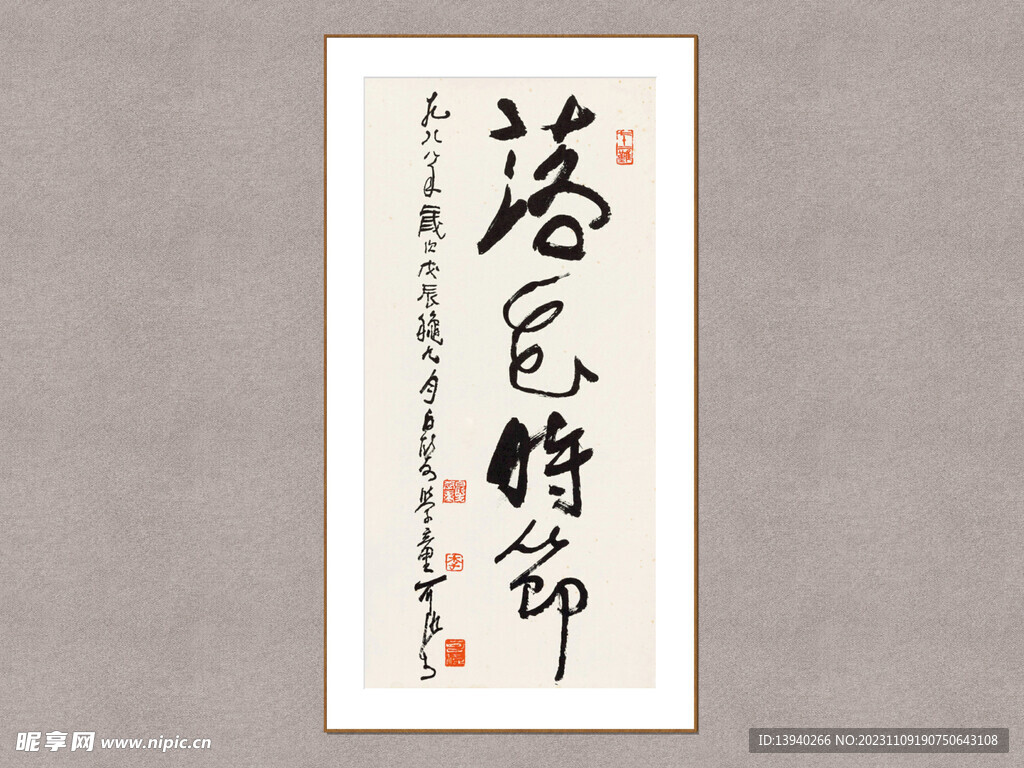 落花時節
一九八八年歲次戊辰龝九月白髮學童可染書
李
昵享网 www.nipic.cn
ID:13940266 NO:20231109190750643108